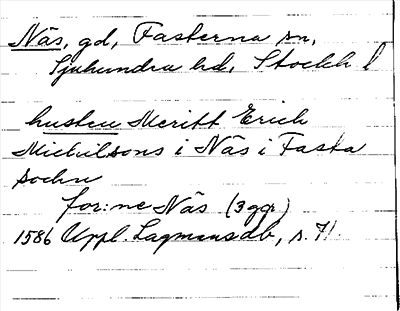 Näs, gd, Fasterna sn,
Sjuhundra hd, Stockh l
hustru Meritt Erich
Michilsons i Näs i Fasta
sochn
for:ne Näs (3 ggr)
1586 Uppl. Lagmansdb, s. 71.